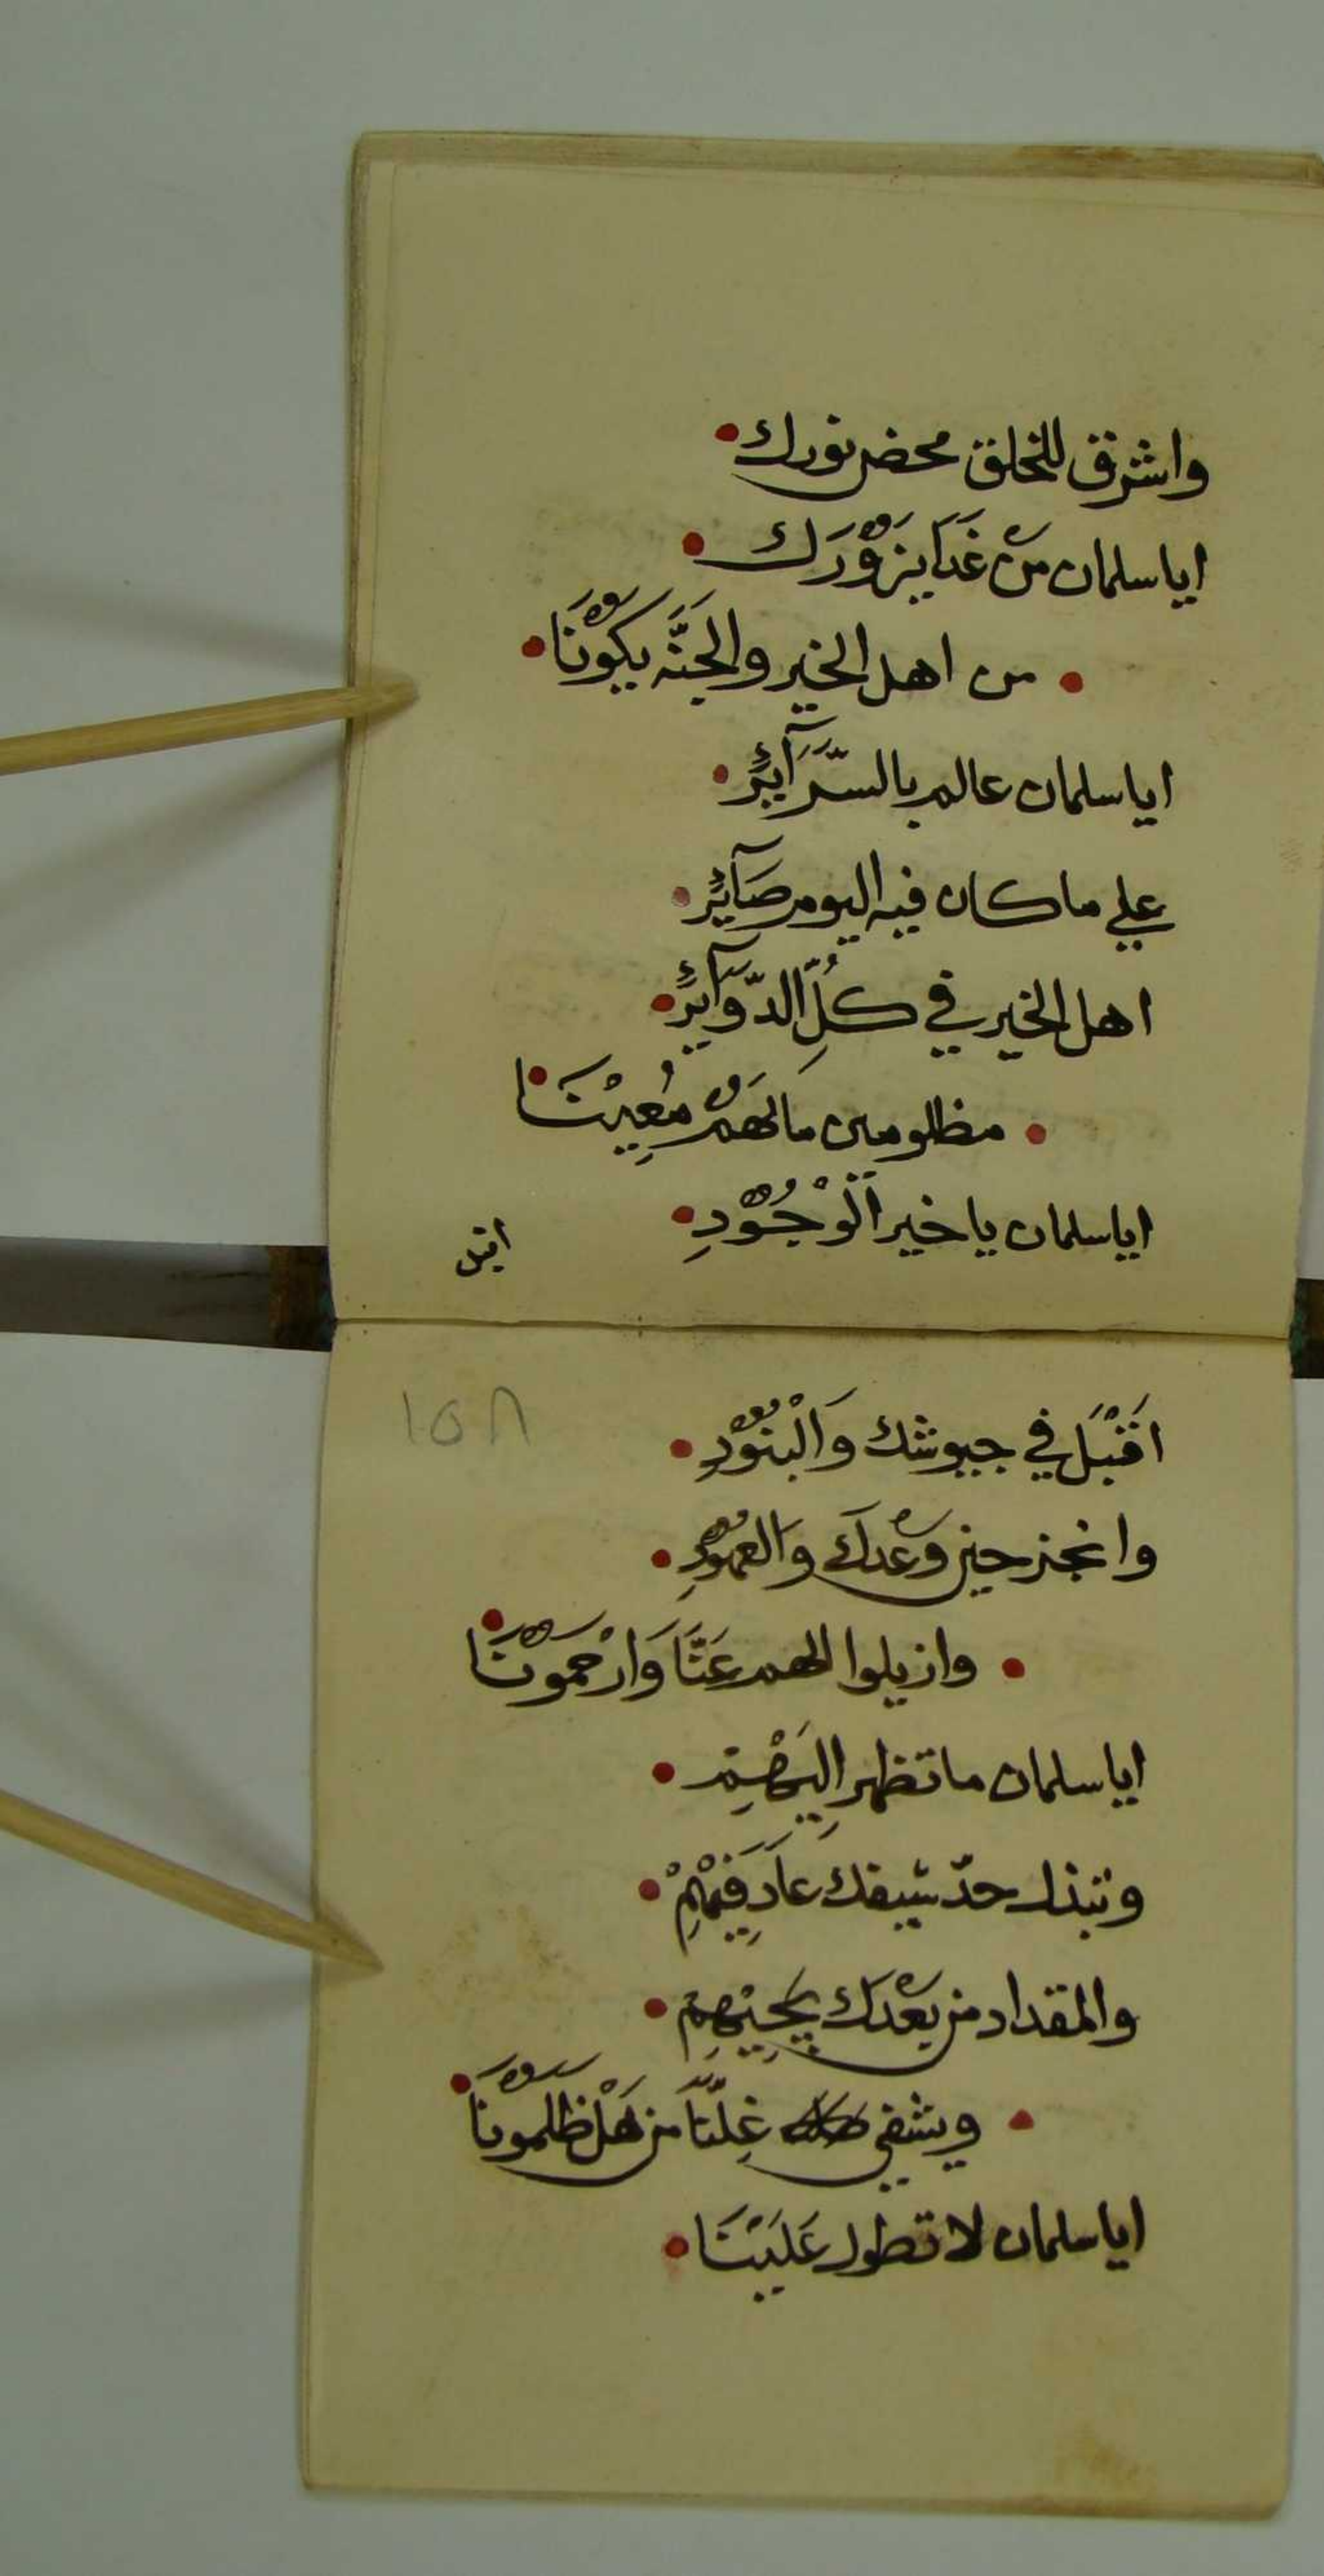 واشرق للخلق محض نورك
ايا سلمان مَن غَدَا يَزُوْرَك
من اهل الخير والجَنَّه يَكُوْنَا
ايا سلمان عالم بالسَّرَآئِرْ
علي ما كان فيه اليوم صَآئِرْ
اهل الخير في كُلِّ الدَّوَآئِرْ
مظلومين مَا لَهُمْ مُعِيْنَا
ايا سلمان يا خير اَلْوُجُوْدِ
اقبل
١٥٨
اَقْبَل في جيوشك وَالْبُنُوْدِ
وانجز حين وَعْدَكَ وَالعُهُوْدِ
وازيلوا الهم عَنَّا وَارْحَمُوْنَا
ايا سلمان ما تظهر اِلَيْهِمْ
وتبذل حدّ سيفك عَادِ فِيْهِمْ
والمقداد من بَعْدَكَ يَجِيْهِمْ
ويشفي غِلَّنَا من هَلْ ظَلَمُوْنَا
ايا سلمان لا تطول عَلَيْنَا